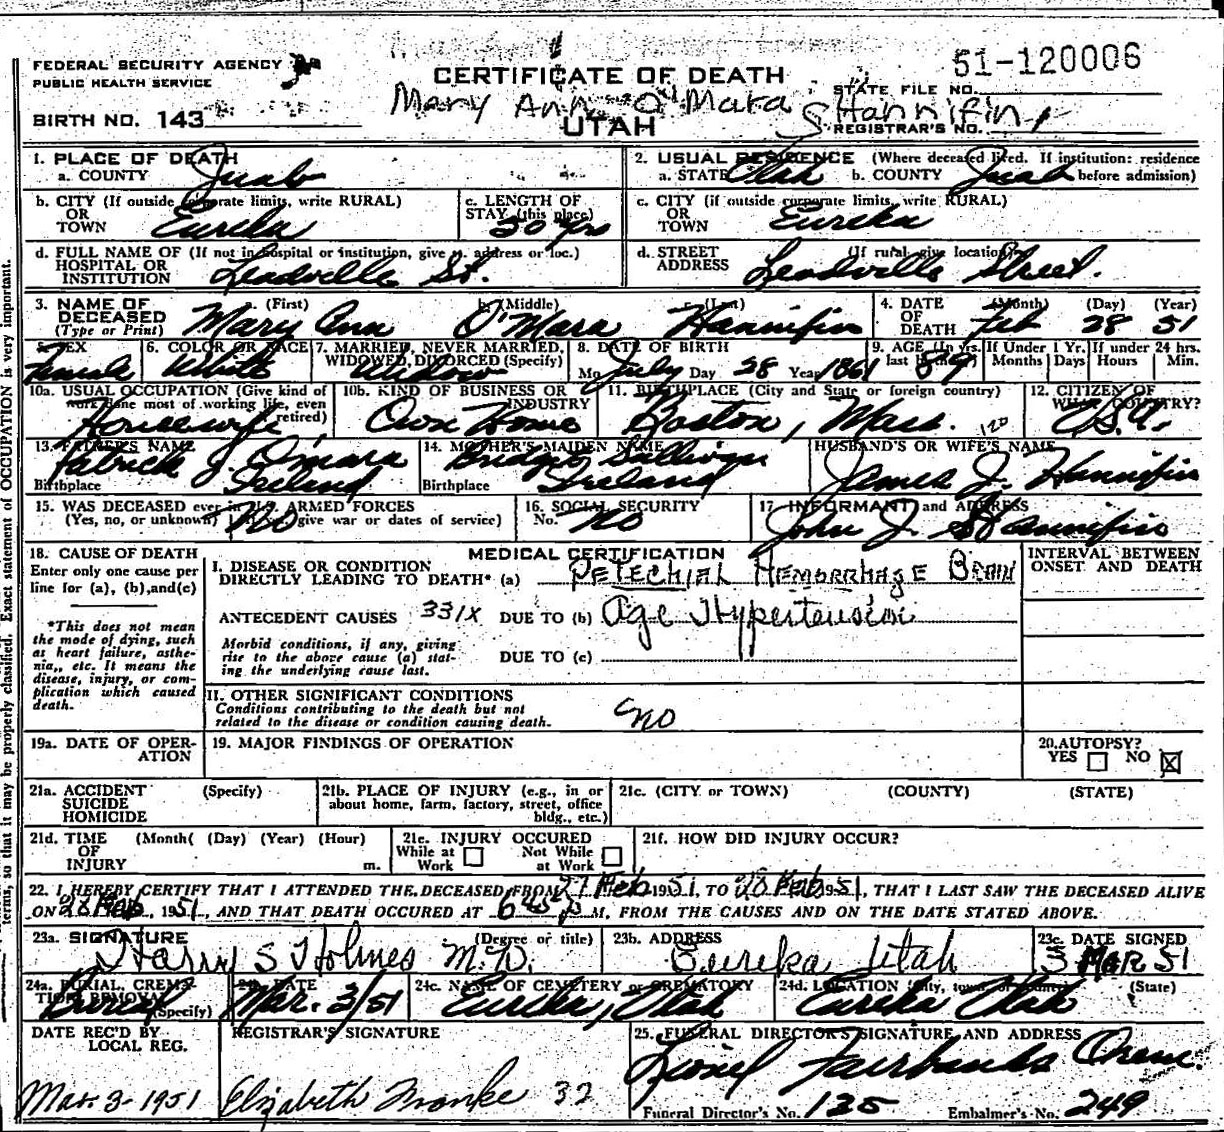 51-120006
FEDERAL SECURITY AGENCY
PUBLIC HEALTH SERVICE
CERTIFICATE OF DEATH
STATE FILE NO.
Mary Ann O'Mara Hannifin
BIRTH NO. 143
UTAH
REGISTRAR'S NO.
1. PLACE OF DEATH
a. COUNTY Juab
2. USUAL RESIDENCE (Where deceased lived. If institution: residence before admission)
a. STATE Utah b. COUNTY Juab
b. CITY (If outside corporate limits, write RURAL) OR TOWN Eureka
c. LENGTH OF STAY (this place) 50 yrs
c. CITY (if outside corporate limits, write RURAL) OR TOWN Eureka
d. FULL NAME OF (If not in hospital or institution, give st. address or loc.) HOSPITAL OR INSTITUTION Leadville St.
d. STREET ADDRESS (If rural, give location) Leadville Street.
3. NAME OF DECEASED (Type or Print) a. (First) Mary Ann b. (Middle) O'Mara c. (Last) Hannifin
4. DATE OF DEATH (Month) Feb (Day) 28 (Year) 51
5. SEX Female
6. COLOR OR RACE White
7. MARRIED, NEVER MARRIED, WIDOWED, DIVORCED (Specify) Widow
8. DATE OF BIRTH Mo July Day 28 Year 1861
9. AGE (In yrs. last birthday) 89 If Under 1 Yr. Months Days If under 24 hrs. Hours Min.
10a. USUAL OCCUPATION (Give kind of work done most of working life, even if retired) Housewife
10b. KIND OF BUSINESS OR INDUSTRY Own Home
11. BIRTHPLACE (City and State or foreign country) Boston, Mass. 120
12. CITIZEN OF WHAT COUNTRY? U.S.A.
13. FATHER'S NAME Patrick J. O'mara
Birthplace Ireland
14. MOTHER'S MAIDEN NAME Bridget Sullivan
Birthplace Ireland
HUSBAND'S OR WIFE'S NAME
James J. Hannifin
15. WAS DECEASED ever in U.S. ARMED FORCES (Yes, no, or unknown) No give war or dates of service)
16. SOCIAL SECURITY No. no
17. INFORMANT and ADDRESS John J. Hannifin
18. CAUSE OF DEATH
Enter only one cause per line for (a), (b), and (c)
*This does not mean the mode of dying, such as heart failure, asthenia, etc. It means the disease, injury, or complication which caused death.
MEDICAL CERTIFICATION
INTERVAL BETWEEN ONSET AND DEATH
I. DISEASE OR CONDITION DIRECTLY LEADING TO DEATH* (a) PETECHIAL HEMORRHAGE BRAIN
ANTECEDENT CAUSES 331X DUE TO (b) Age Hypertension
Morbid conditions, if any, giving rise to the above cause (a) stating the underlying cause last.
DUE TO (c)
II. OTHER SIGNIFICANT CONDITIONS
Conditions contributing to the death but not related to the disease or condition causing death.
no
19a. DATE OF OPERATION
19. MAJOR FINDINGS OF OPERATION
20. AUTOPSY?
YES NO X
21a. ACCIDENT SUICIDE HOMICIDE (Specify)
21b. PLACE OF INJURY (e.g., in or about home, farm, factory, street, office bldg., etc.)
21c. (CITY or TOWN) (COUNTY) (STATE)
21d. TIME OF INJURY (Month( (Day) (Year) (Hour) m.
21e. INJURY OCCURED While at Work Not While at Work
21f. HOW DID INJURY OCCUR?
22. I HEREBY CERTIFY THAT I ATTENDED THE DECEASED FROM 27 Feb 1951, TO 28 Feb 1951, THAT I LAST SAW THE DECEASED ALIVE
ON 28 Feb, 1951, AND THAT DEATH OCCURED AT 645 P M, FROM THE CAUSES AND ON THE DATE STATED ABOVE.
23a. SIGNATURE (Degree or title) Harry S Holmes M.D.
23b. ADDRESS Eureka Utah
23c. DATE SIGNED 3 MAR 51
24a. BURIAL, CREMATION, REMOVAL (Specify) Burial
24b. DATE Mar. 3/51
24c. NAME OF CEMETERY or CREMATORY Eureka, Utah
24d. LOCATION (City, town, or county) (State) Eureka Utah
DATE REC'D BY LOCAL REG.
Mar. 3-1951
REGISTRAR'S SIGNATURE
Elizabeth Franke 32
25. FUNERAL DIRECTOR'S SIGNATURE AND ADDRESS
Lionel Fairbanks Orem.
Funeral Director's No. 125 Embalmer's No. 249
terms, so that it may be properly classified. Exact statement of OCCUPATION is very important.